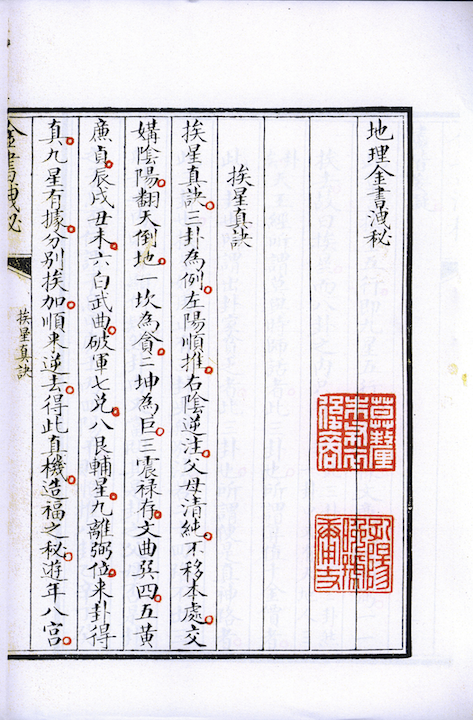 地理金書洩秘
挨星真訣
挨星真訣三卦為例左陽順推右陰逆注父母清純不移本處交
媾陰陽翻天倒地一坎為貪二坤為巨三震祿存文曲巽四五黃
廉貞辰戌丑未六白武曲破軍七兌八艮輔星九離弼位來卦得
真九星有據分別挨加順來逆去得此真機造福之秘遊年八宮
金書洩秘
挨星真訣